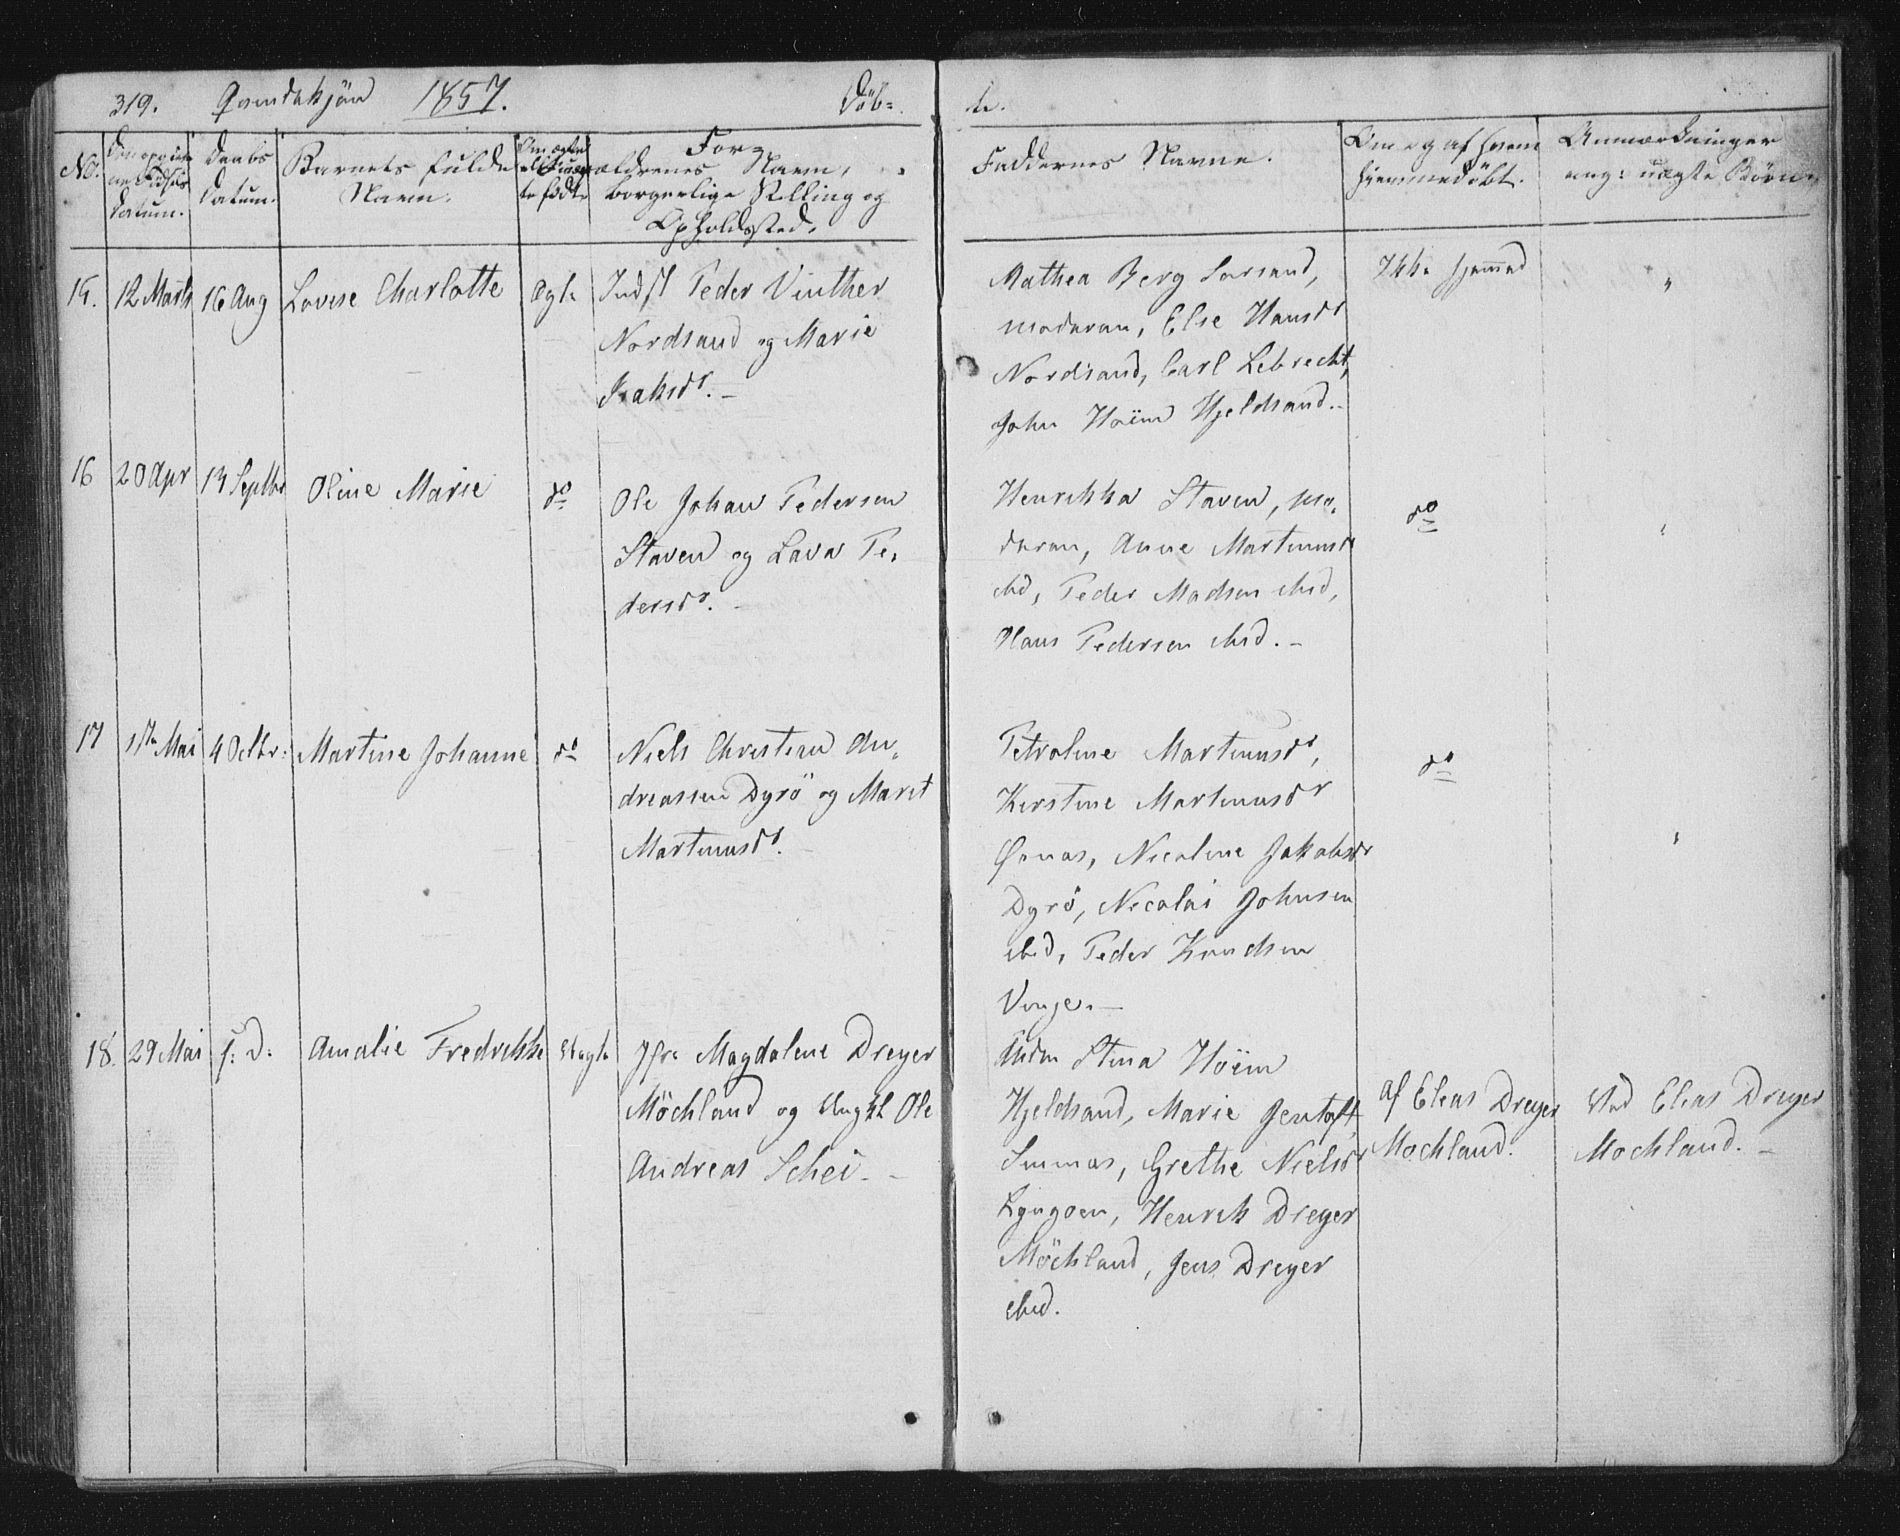 319. Qvindekjön 1857. Döb=
te.
No.
Den opgivne
Fødsels
Datum.
Daabs
Datum.
Barnets fulde
Navn.
Om ægte
eller uæg
te født.
For=
ældrenes Navn,
borgerlige Stilling og
Opholdssted.
Faddernes Navne.
Om og af hvem
hjemmedöbt.
Anmærkninger
ang: uægte Börn.
15. 12 Marts 16 Aug Lovise Charlotte Ægte
Indst Peder Vinther
Nordsand og Marie
Isaksdr. –
Mathea Berg
moderen, Else Hansdr
Nordsand, Carl Lebrecht,
John Höim Hjeldsand. –
Ikke hjemmed
"
16 20 Apr 13 Septbr Oline Marie do
Ole Johan Pedersen
Staven og Lava Pe,
dersdr. –
Henrikka Staven, mo,
deren, Anne Martinusdr
ibid, Peder Madsen ibid,
Hans Pedersen ibid. –
do
"
17 1ste Mai 4 Octbr: Martine Johanne do
Niels Christian An,
dreassen Dyrö og Marit
Martinusdr. –
Petroline Martinusdr,
Kirstine Martinusdr
Ørnas, Nicoline Jakobsdr
Dyrö, Nicolai Johnsen
ibid, Peder Knudsen
Vinje. –
do
"
18. 29 Mai s: D: Amalie Fredrikke Uægte
Jfr. Magdalene Dreyer
Möckland og Ungkl Ole
Andreas Schei. –
Stina Höim
Hjeldsand, Marie Jentoft
Grethe Nielsdr
Lyngöen, Henrik Dreyer
Möckland, Jens Dreyer
ibid.
Af Elias Dreyer
Mockland.
Ved Elias Dreyer
Mockland. –